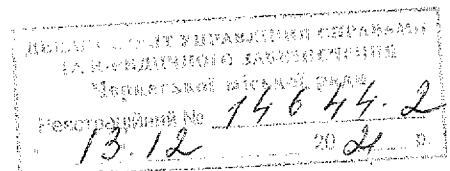 ДЕПАРТАМЕНТ УПРАВЛІННЯ СПРАВАМИ
ТА ЮРИДИЧНОГО ЗАБЕЗПЕЧЕННЯ
Черкаської міської ради
Реєстраційний № 14644.2
" 13.12 20 21 р.